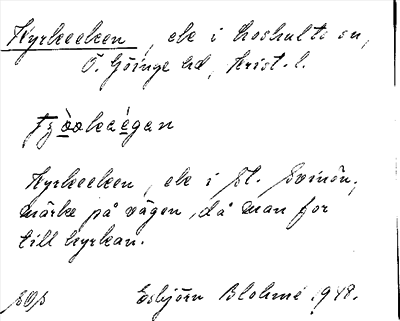 Kyrkeeken, ek i Loshults sn,
Ö. Göinge hd, Krist. l.
Kyrkeeken, ek i St. Svinön,
märke på vägen, då man for
till kyrkan.
Esbjörn Blohmé 1948.